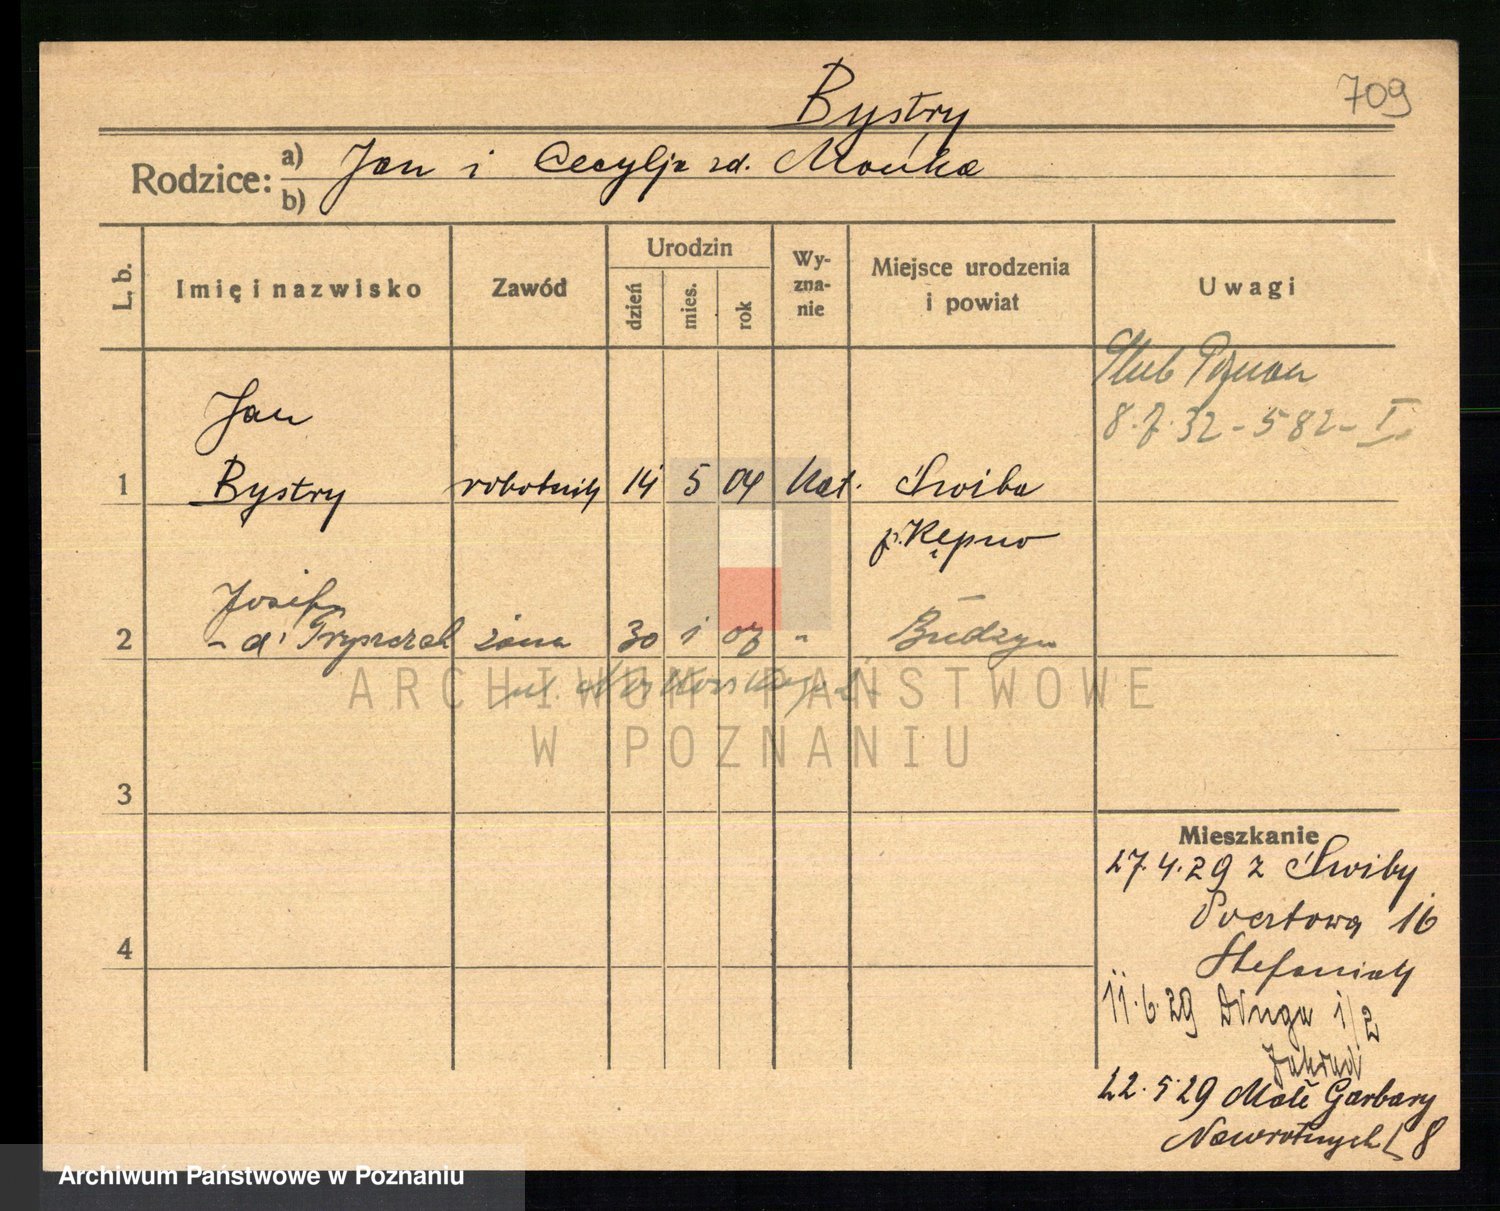 Bystry
709
Rodzice: a) Jan i Cecylja zd. Mońka
b)
L. b. Imię i nazwisko Zawód Urodzin dzień mies. rok Wyznanie Miejsce urodzenia i powiat Uwagi
Ślub Poznań
8.7.32 - 582 - I.
Jan
1 Bystry robotnik 14 5 04 kat. Świba
p. Kępno
Józefa
2 - d. żona 30 1 07 " Budzyn
ul.
ARCHIWUM PAŃSTWOWE
W POZNANIU
3
4
Mieszkanie
27.4.29 z Świby
Pocztowa 16
Stefaniak
11.6.29 Długa 1/2
22.5.29 Małe Garbary
Nawrotnych 8
Archiwum Państwowe w Poznaniu